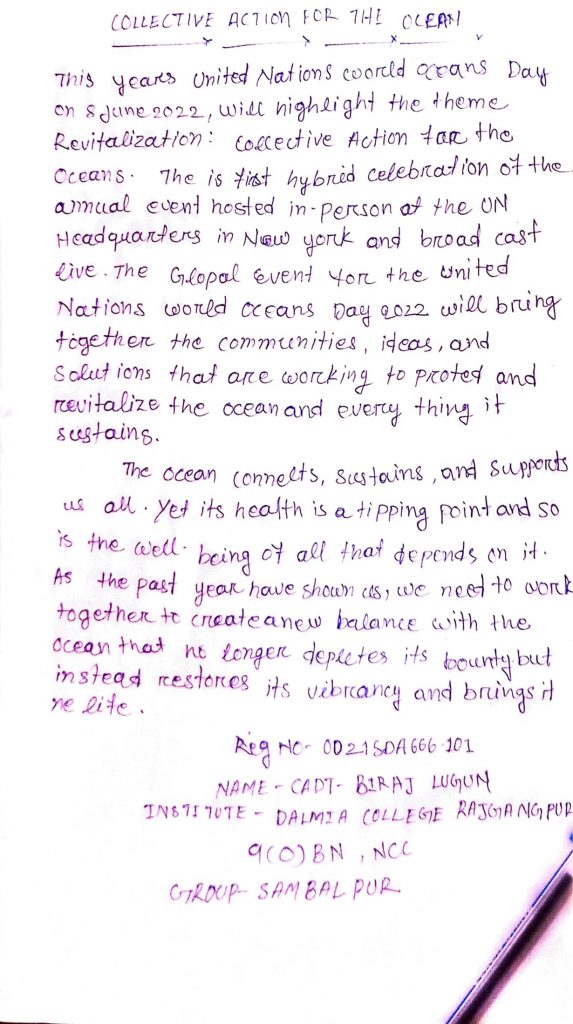 COLLECTIVE ACTION FOR THE OCEAN
This years United Nations world oceans Day
on 8 June 2022, will highlight the theme
Revitalization: Collective Action for the
Oceans. The is first hybrid celebration of the
annual event hosted in-person at the UN
Headquarters in New york and broad cast
live. The Glopal Event for the united
Nations world oceans Day 2022 will bring
together the communities, ideas, and
Solutions that are working to proted and
revitalize the ocean and every thing it
sustains.
The ocean connelts, sustains, and supports
us all. Yet its health is a tipping point and so
is the well-being of all that depends on it.
As the past year have shown us, we need to work
together to create a new balance with the
ocean that no longer depletes its bounty but
instead restores its vibrancy and brings it
ne life.
Reg No- OD21SDA666101
NAME - CADT- BIRAJ LUGUN
INSTITUTE - DALMIA COLLEGE RAJGANGPUR
9(O) BN, NCC
GROUP- SAMBALPUR